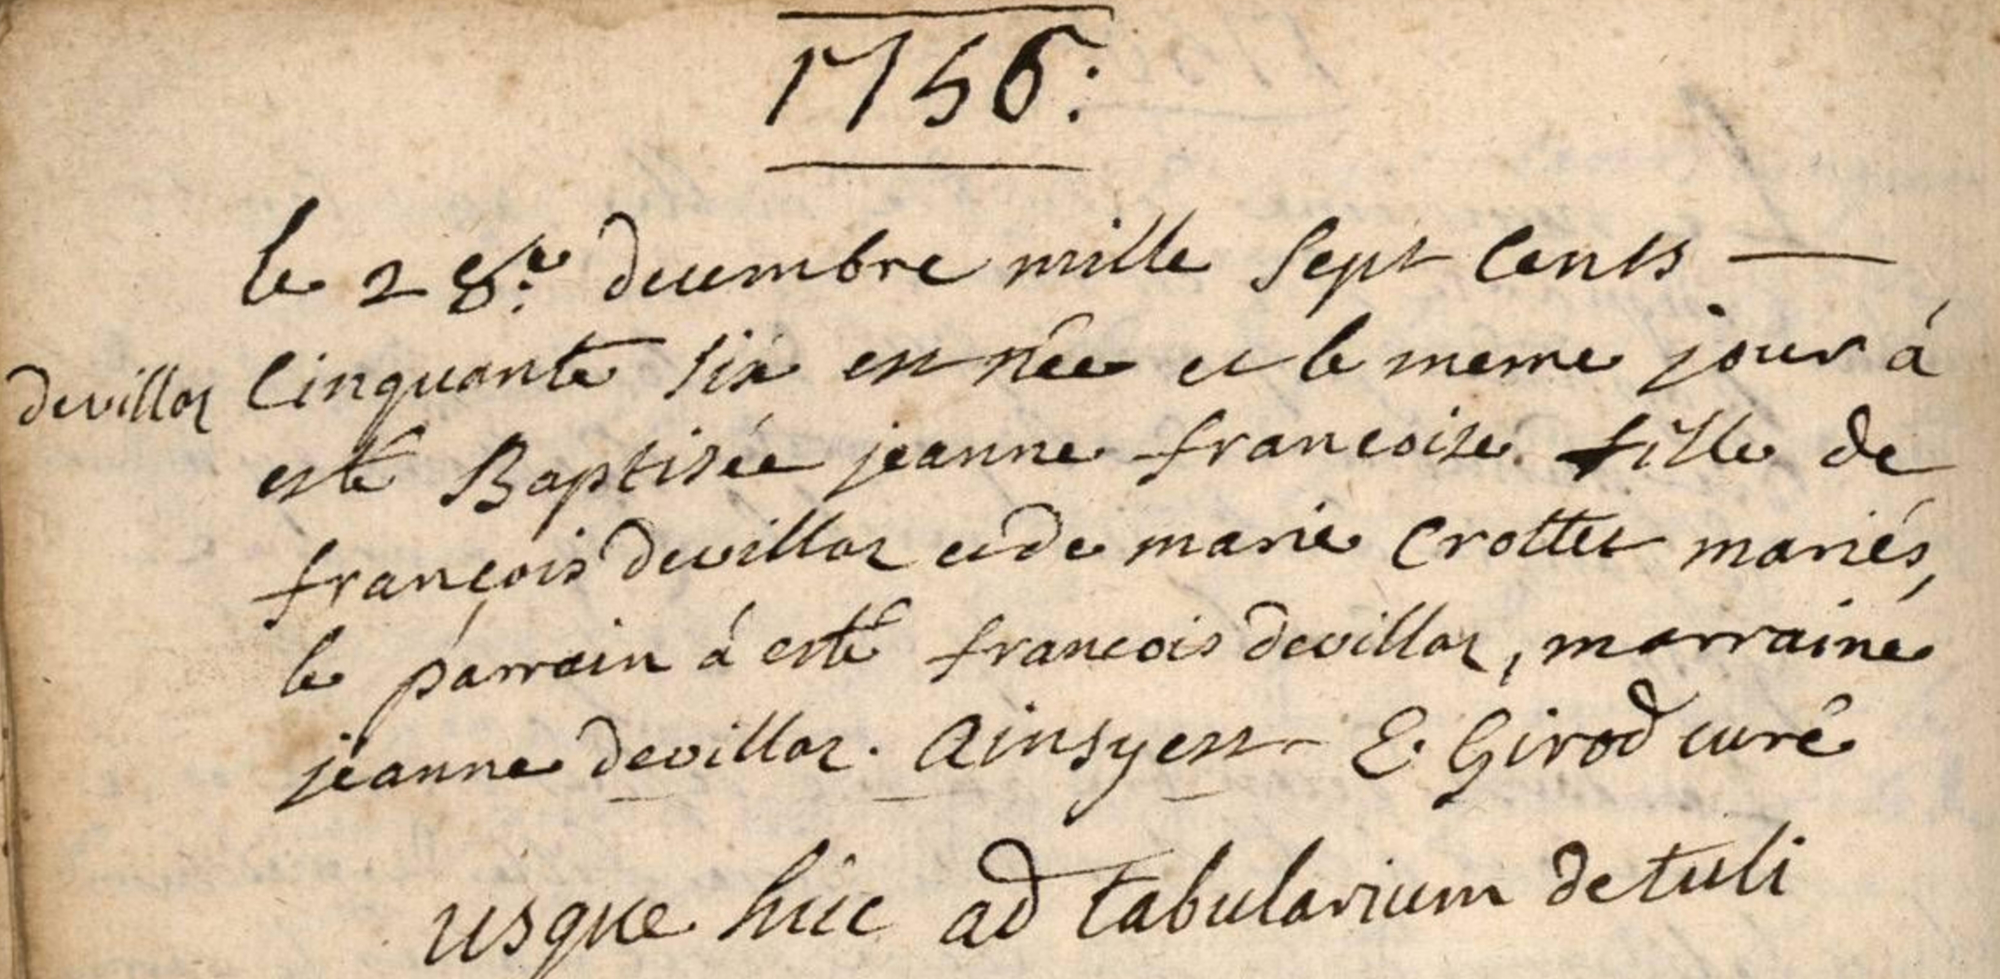 1756:
le 28.e decembre mille sept cents —
devillaz
cinquante six est née et le meme jour à
esté Baptisée jeanne francoise fille de
françois devillaz et de marie crottet mariés,
le parrain à esté francois devillaz, marraine
jeanne devillaz. Ainsy est E. Girod curé
usque huc ad tabularium detuli